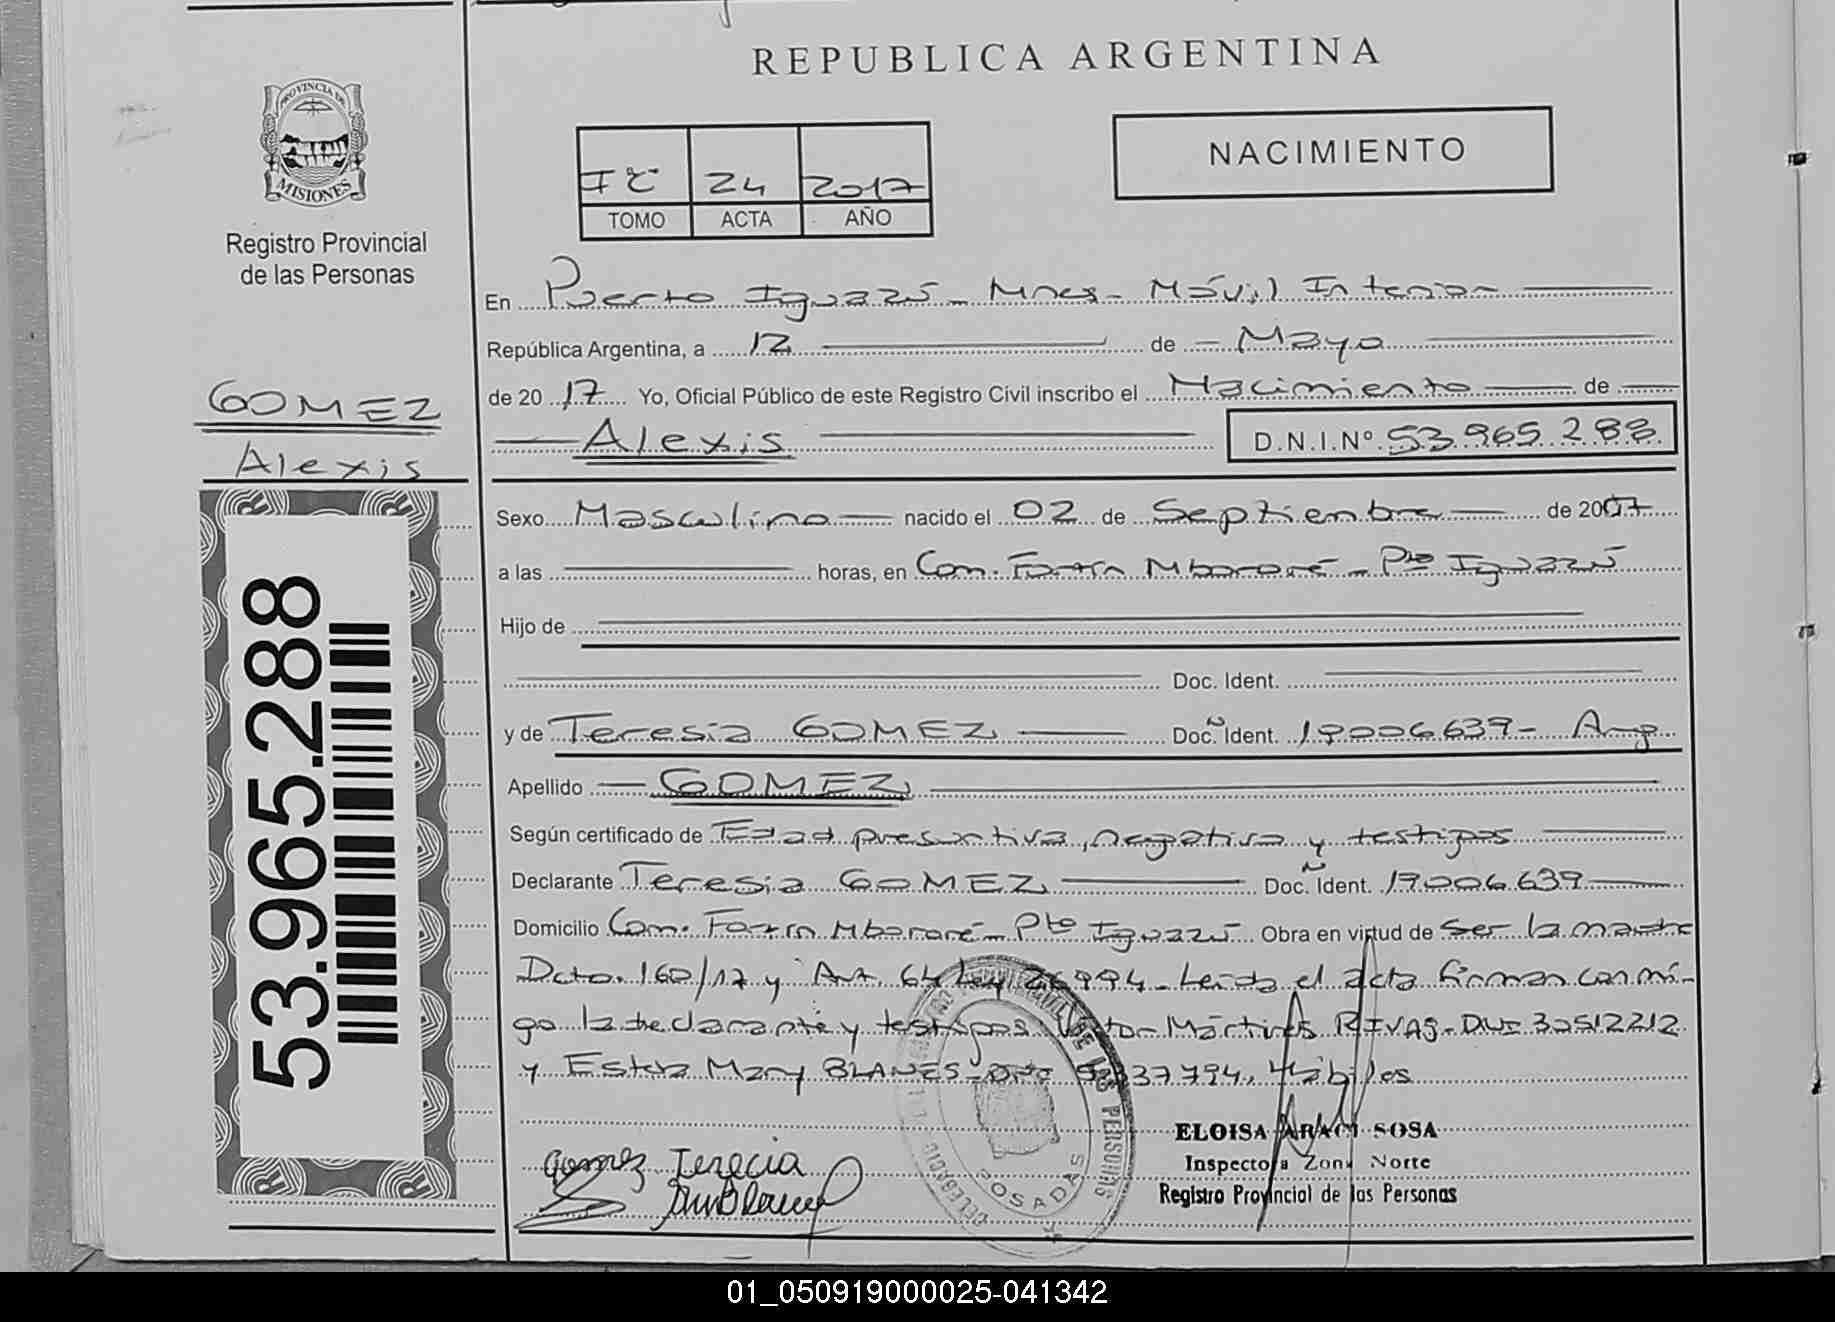 REPUBLICA ARGENTINA
PROVINCIA DE
MISIONES
Registro Provincial
de las Personas
24 2017
TOMO ACTA AÑO
NACIMIENTO
En Puerto Iguazú - Mnes - Móvil Interior
República Argentina, a 12 de Mayo
de 2017 Yo, Oficial Público de este Registro Civil inscribo el Nacimiento de
Alexis
D.N.I.Nº 53.965.288
GOMEZ
Alexis
53.965.288
Sexo Masculino nacido el 02 de Septiembre de 2007
a las horas, en Com. Fortín Mbororé - Pto Iguazú
Hijo de
Doc. Ident.
y de Teresia GOMEZ Doc. Ident. 19006.639 - Arg
Apellido GOMEZ
Según certificado de Edad presuntiva, negativa y testigos
Declarante Teresia GOMEZ Doc. Ident. 19006.639
Domicilio Com. Fortín Mbororé - Pto Iguazú Obra en virtud de ser la madre
Dcto. 160/17 y Art. 64 Ley 26994 - Leída el acta firman conmi-
go la declarante y testigos Martires RIVAS - DNI 30512212
y Mary BLANES - 37794. Hábiles
Gomez Terecia
DE LAS PERSONAS
POSADAS
ELOISA ARACI SOSA
Inspectora Zona Norte
Registro Provincial de las Personas
01_050919000025-041342